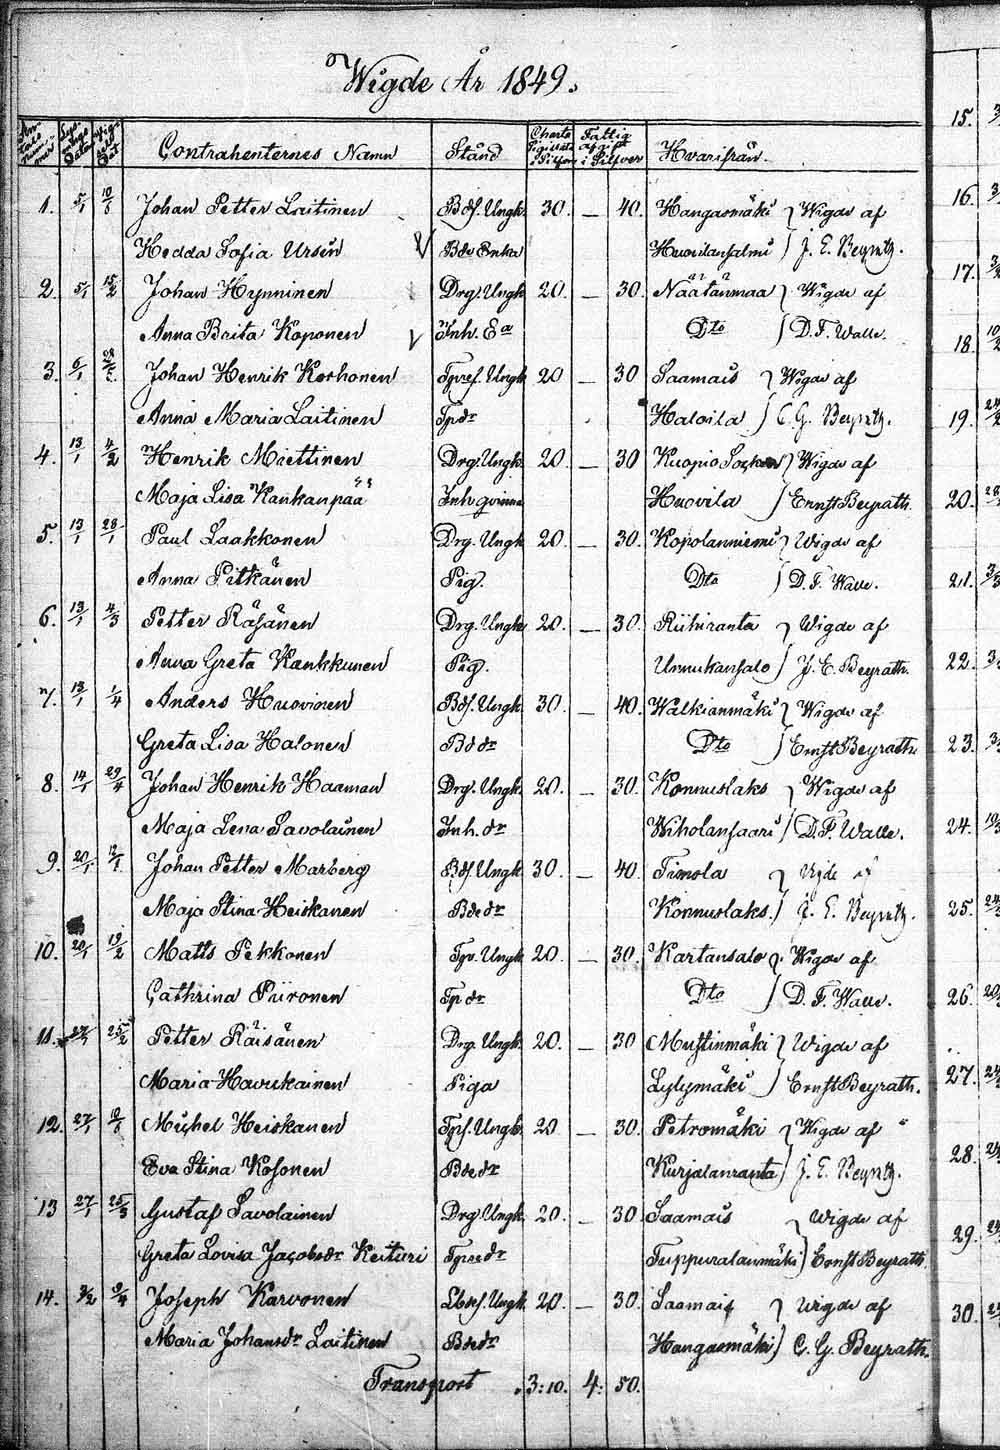 Wigde År 1849.
Contrahenternes Namn Stånd Charta Sigillata i Silfver Fattig afgift i Silfver Hvarifrån.
1. 5/1 10/6 Johan Petter Laitinen Bds. Ungk. 30. — 40. Hangasmäki } Wigde af
Hedda Sofia Ursin Bde Enka } J. E. Beyrath.
2. 5/1 15/2 Johan Hynninen Drg. Ungk 20. — 30. Näätänmaa } Wigde af
Anna Brita Koponen Inh. Ea Dto } D. F. Walle.
3. 6/1 Johan Henrik Korhonen Ungk. 20 — 30 Saamais } Wigde af
Anna Maria Laitinen Tpdr Haloila } C. G. Beyrath.
4. 13/1 4/2 Henrik Miettinen Drg. Ungk. 20. — 30 Kuopio Socken } Wigde af
Maja Lisa Kankanpää Inh qvinna Huovila } Ernst Beyrath.
5. 13/1 28/1 Paul Laakkonen Drg. Ungk 20. — 30. Kopolanniemi } Wigde af
Anna Pitkänen Pig. Dto } D. F. Walle.
6. 13/1 4/3 Petter Räsänen Drg. Ungk. 20. — 30. Riihiranta } Wigde af
Anna Greta Kankkunen Pig. Unnukansalo } J. E. Beyrath.
7. 13/1 1/4 Anders Huovinen Bds. Ungk. 30. — 40. Walkianmäki } Wigde af
Greta Lisa Halonen Bddr Dto } Ernst Beyrath.
8. 14/1 29/4 Johan Henrik Haaman Drg. Ungk. 20. — 30. Konnuslaks } Wigde af
Maja Lena Savolainen Inh. dr Wiholansaari } D. F. Walle.
9. 20/1 Johan Petter Marberg Bds. Ungk. 30. — 40. Timola } Wigde af
Maja Stina Heiskanen Bdedr Konnuslaks. } J. E. Beyrath.
10. 20/1 19/2 Matts Pekkonen Tpv. Ungk 20. — 30. Kartansalo } Wigde af
Cathrina Piironen Tpdr Dto } D. F. Walle.
11. 27/1 25/2 Petter Räisänen Drg. Ungk. 20. — 30 Mustinmäki } Wigde af
Maria Havukainen Piga Lylymäki } Ernst Beyrath.
12. 27/1 Michel Heiskanen Tps. Ungk. 20 — 30. Petromäki } Wigde af
Eva Stina Kosonen Bdedr Kurjalanranta } J. E. Beyrath.
13 27/1 25/3 Gustaf Savolainen Drg Ungk. 20. — 30 Saamais } Wigde af
Greta Lovisa Jacobsdr Keituri Tpsedr Tuppuralanmäki } Ernst Beyrath.
14. 3/2 9/4 Joseph Karvonen Ungk. 20. — 30. Saamais } Wigde af
Maria Johansdr Laitinen Bdedr Hangasmäki } C. G. Beyrath.
Transport 3:10. 4: 50.
15.
16.
17.
18.
19.
20.
21.
22.
23.
24.
25.
26.
27.
28.
29.
30.